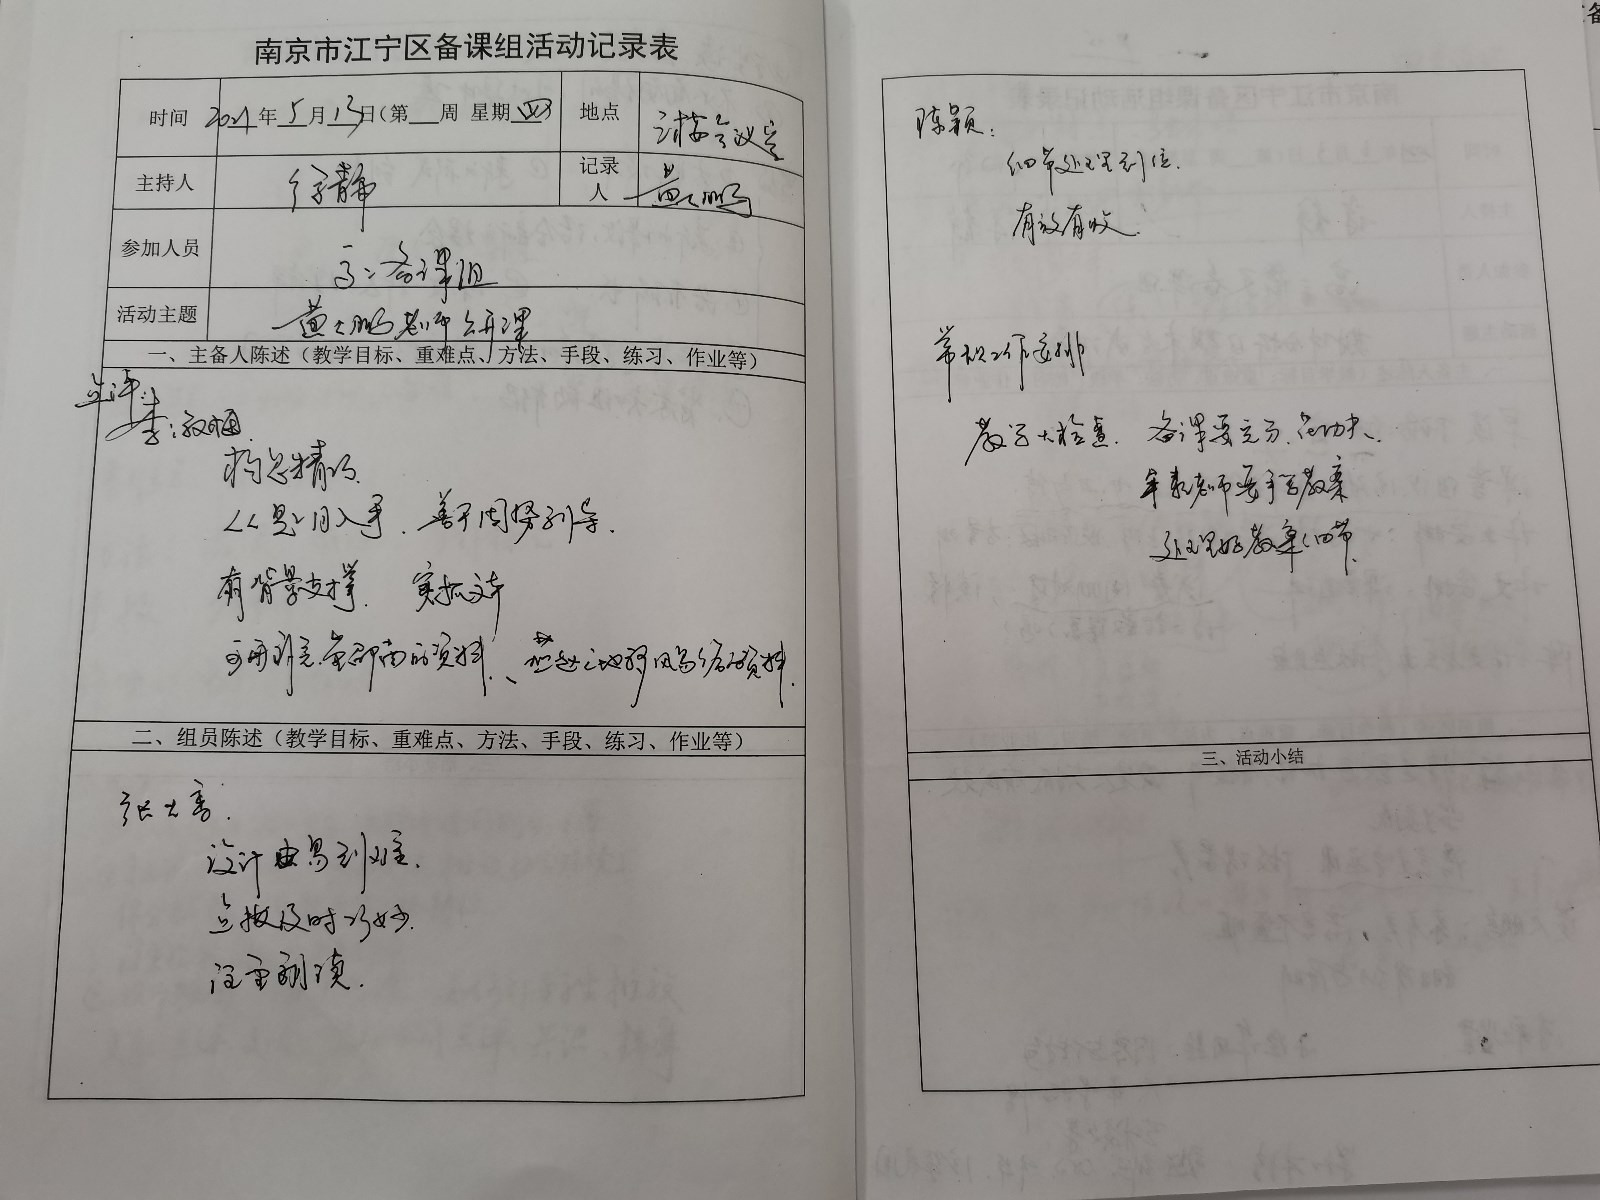 南京市江宁区备课组活动记录表
时间 2021年5月13日(第__周 星期四 地点 会议室
主持人 徐静 记录人 黄大鹏
参加人员 高二备课组
活动主题 黄大鹏老师公开课
一、主备人陈述（教学目标、重难点、方法、手段、练习、作业等）
点评:
李
构思精巧.
从题目入手. 善于因势利导.
有背景支撑. 实抓文本
的资料.
二、组员陈述（教学目标、重难点、方法、手段、练习、作业等）
张大春.
设计由易到难.
点拨及时巧妙.
注重朗读.
陈颖:
细节处理到位.
有放有收.
常规工作安排
教学大检查. 备课要充分.
年轻老师要手写教案
处理好教案细节.
三、活动小结